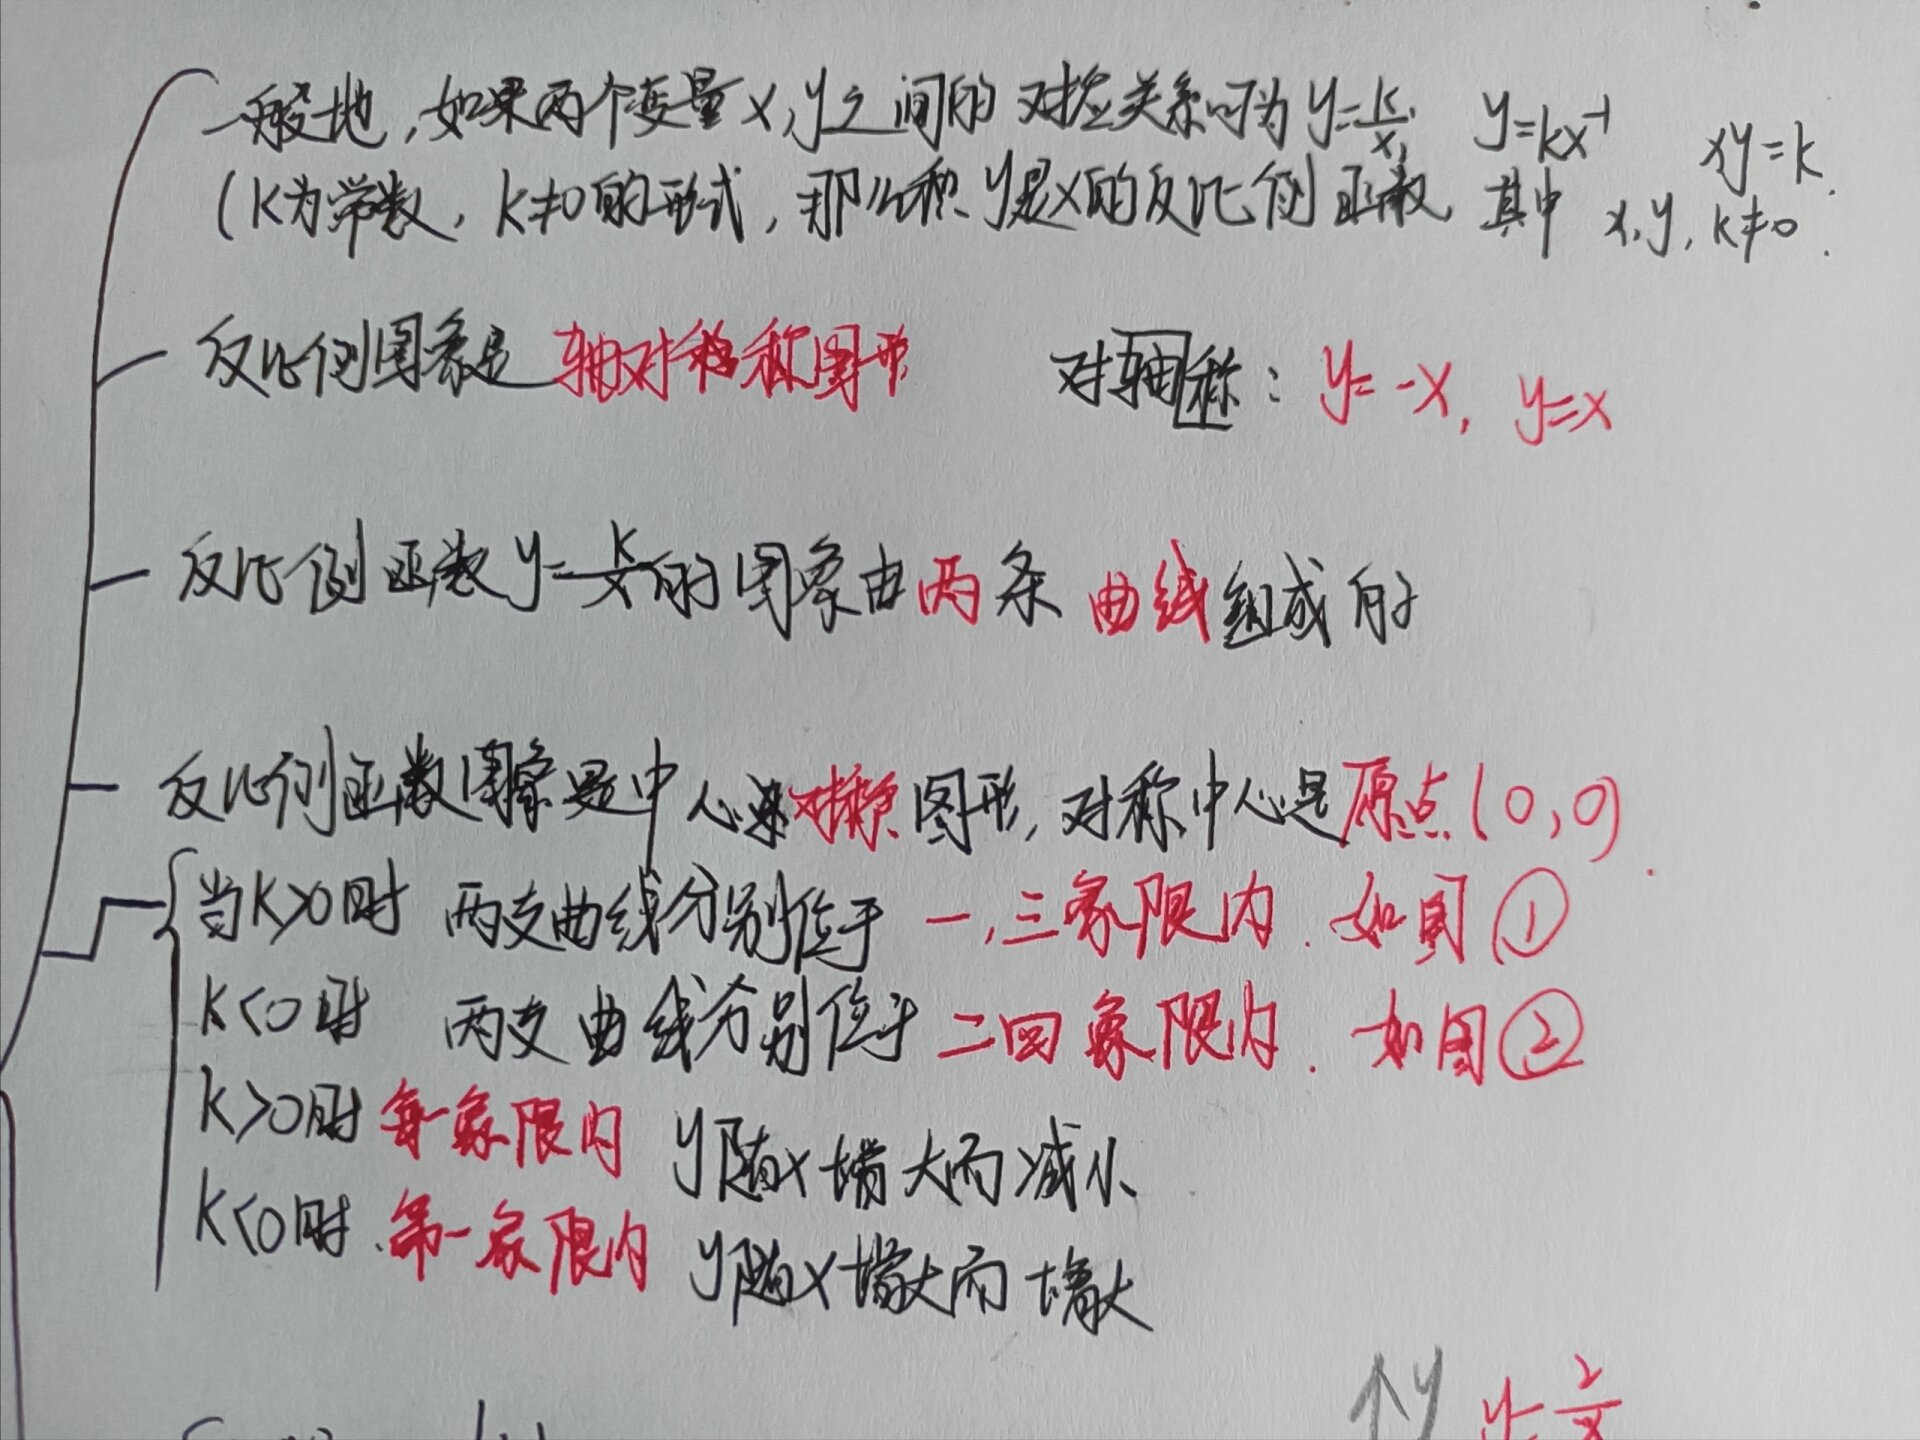 一般地，如果两个变量x,y之间的对应关系可为y=k/x, y=kx⁻¹ xy=k.
(k为常数，k≠0的形式，那么称y是x的反比例函数 其中 x,y,k≠0.
反比例图象是轴对称图形 对轴称：y=-x, y=x
反比例函数y=k/x的图象由两条曲线组成的
反比例函数图象是中心对称图形,对称中心是原点(0,0).
当k>0时 两支曲线分别位于 一,三象限内. 如图①
k<0时 两支曲线分别位于 二四象限内. 如图②
k>0时 每一象限内 y随x增大而减小
k<0时.第一象限内 y随x增大而增大
y y=2/x